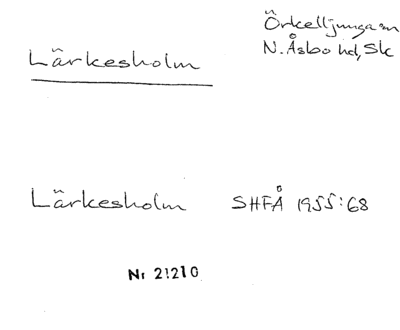 Lärkesholm
Örkelljunga sn
N. Åsbo hd, Sk
Lärkesholm SHFÅ 1955:68
Nr 21210